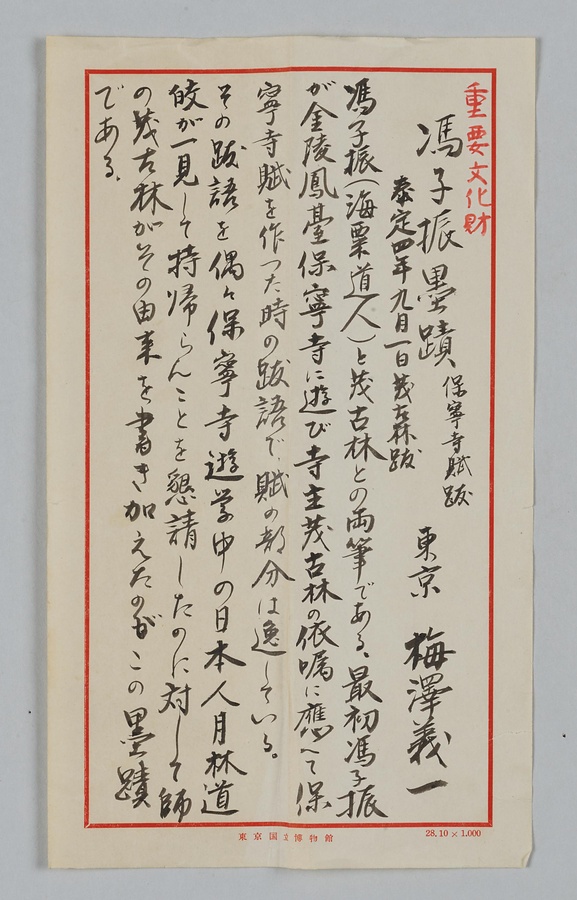 重要文化財
馮子振墨蹟 保寧寺賦跋 東京 梅澤義一
泰定四年九月一日茂古林跋
馮子振(海粟道人)と茂古林との両筆である、最初馮子振
が金陵鳳臺保寧寺に遊び寺主茂古林の依嘱に應へて保
寧寺賦を作つた時の跋語で、賦の部分は逸している。
その跋語を偶々保寧寺遊学中の日本人月林道
皎が一見して持帰らんことを懇請したのに対して師
の茂古林がその由来を書き加えたのがこの墨蹟
である。
東京国立博物館
28.10×1.000